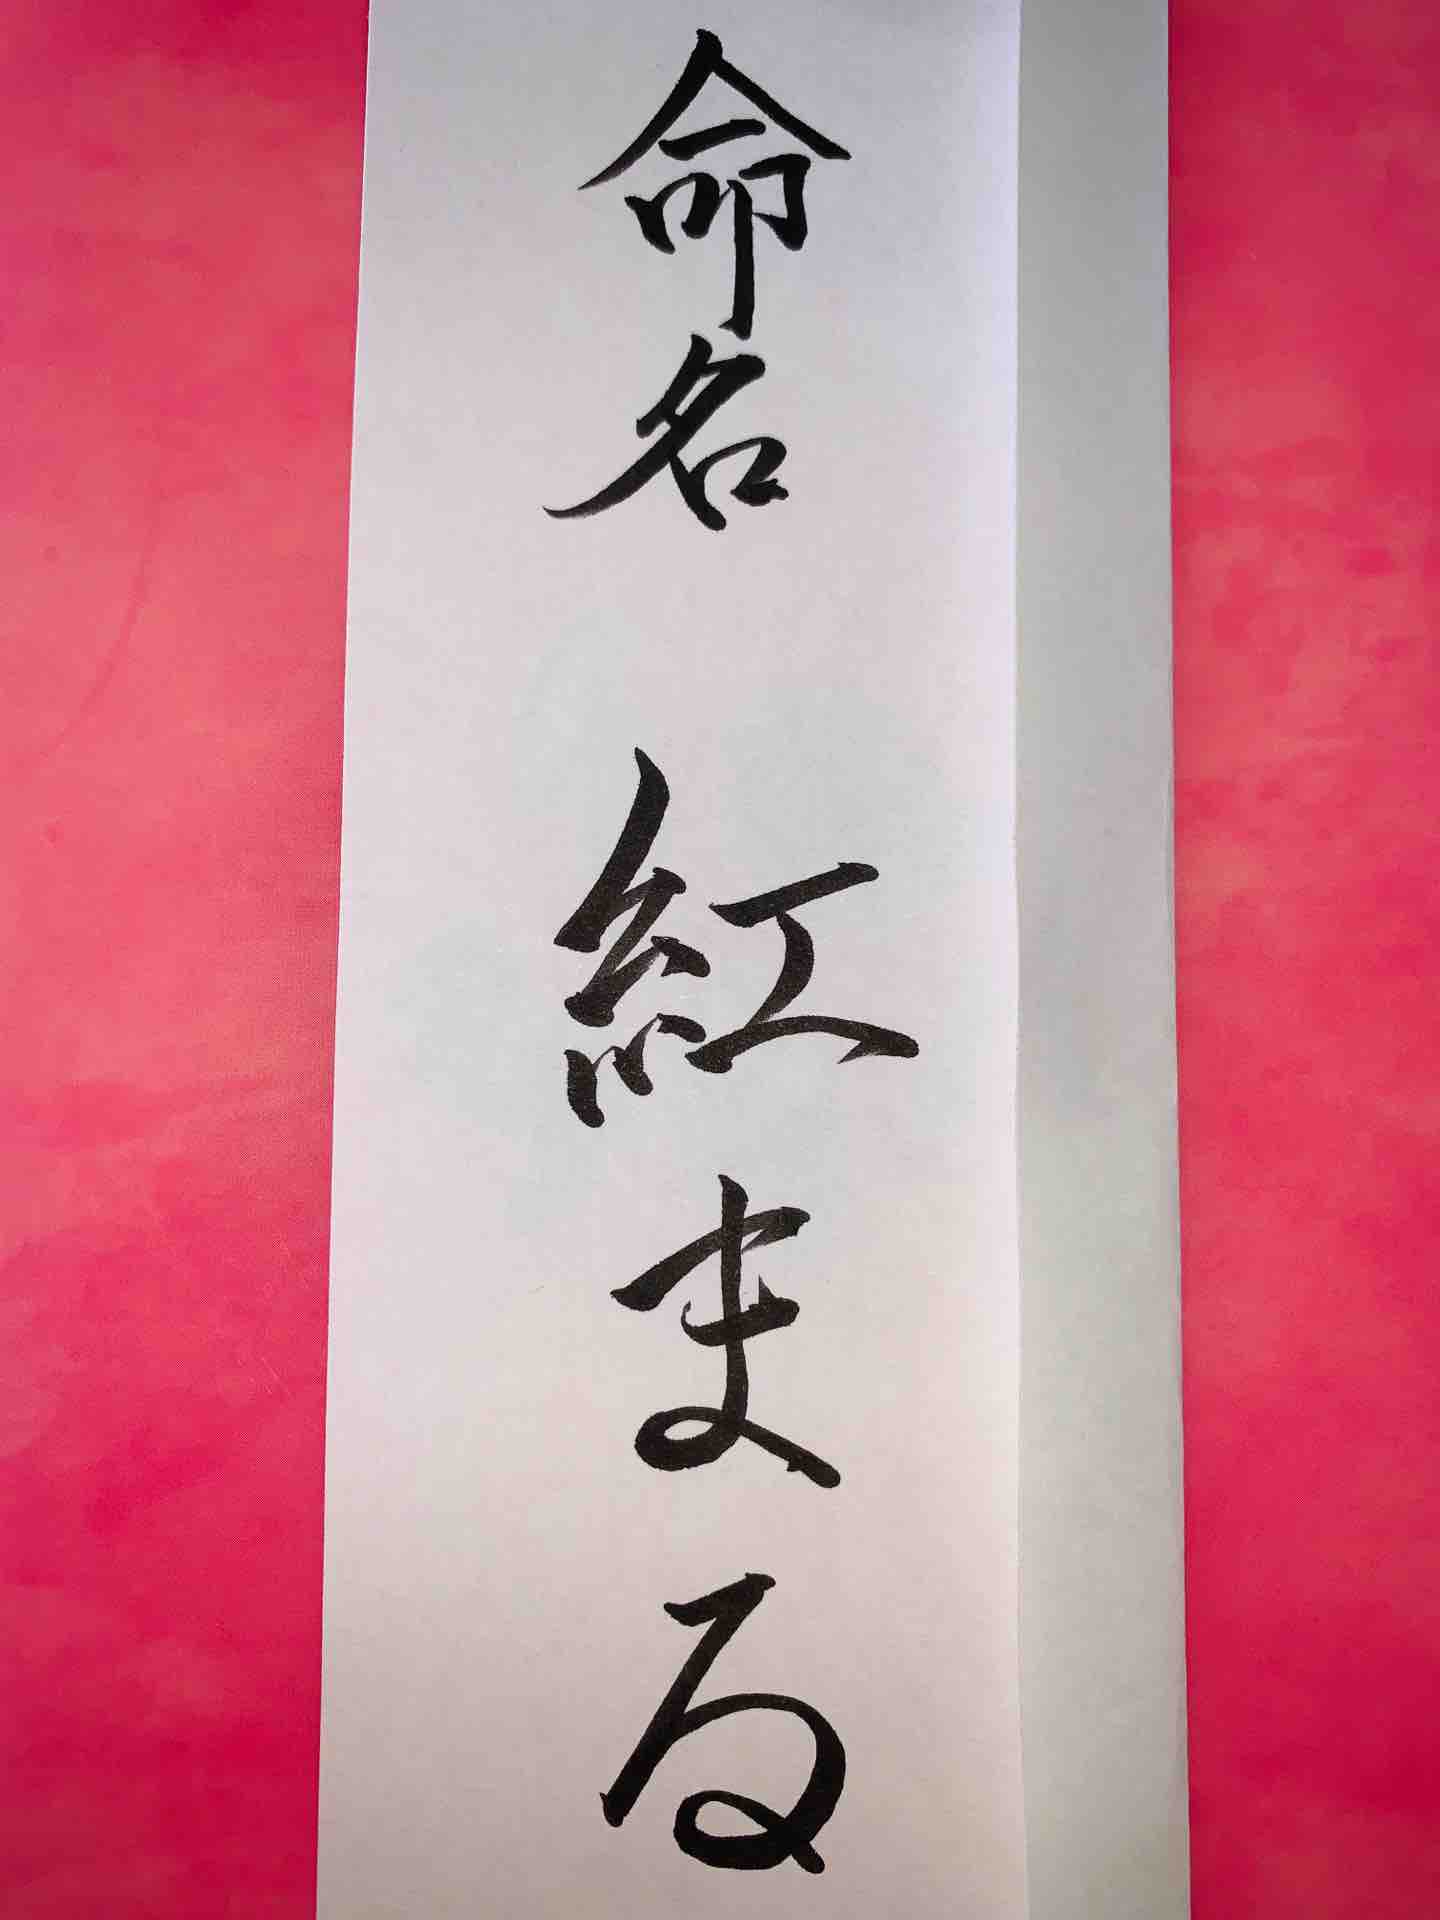 命名 紅まる